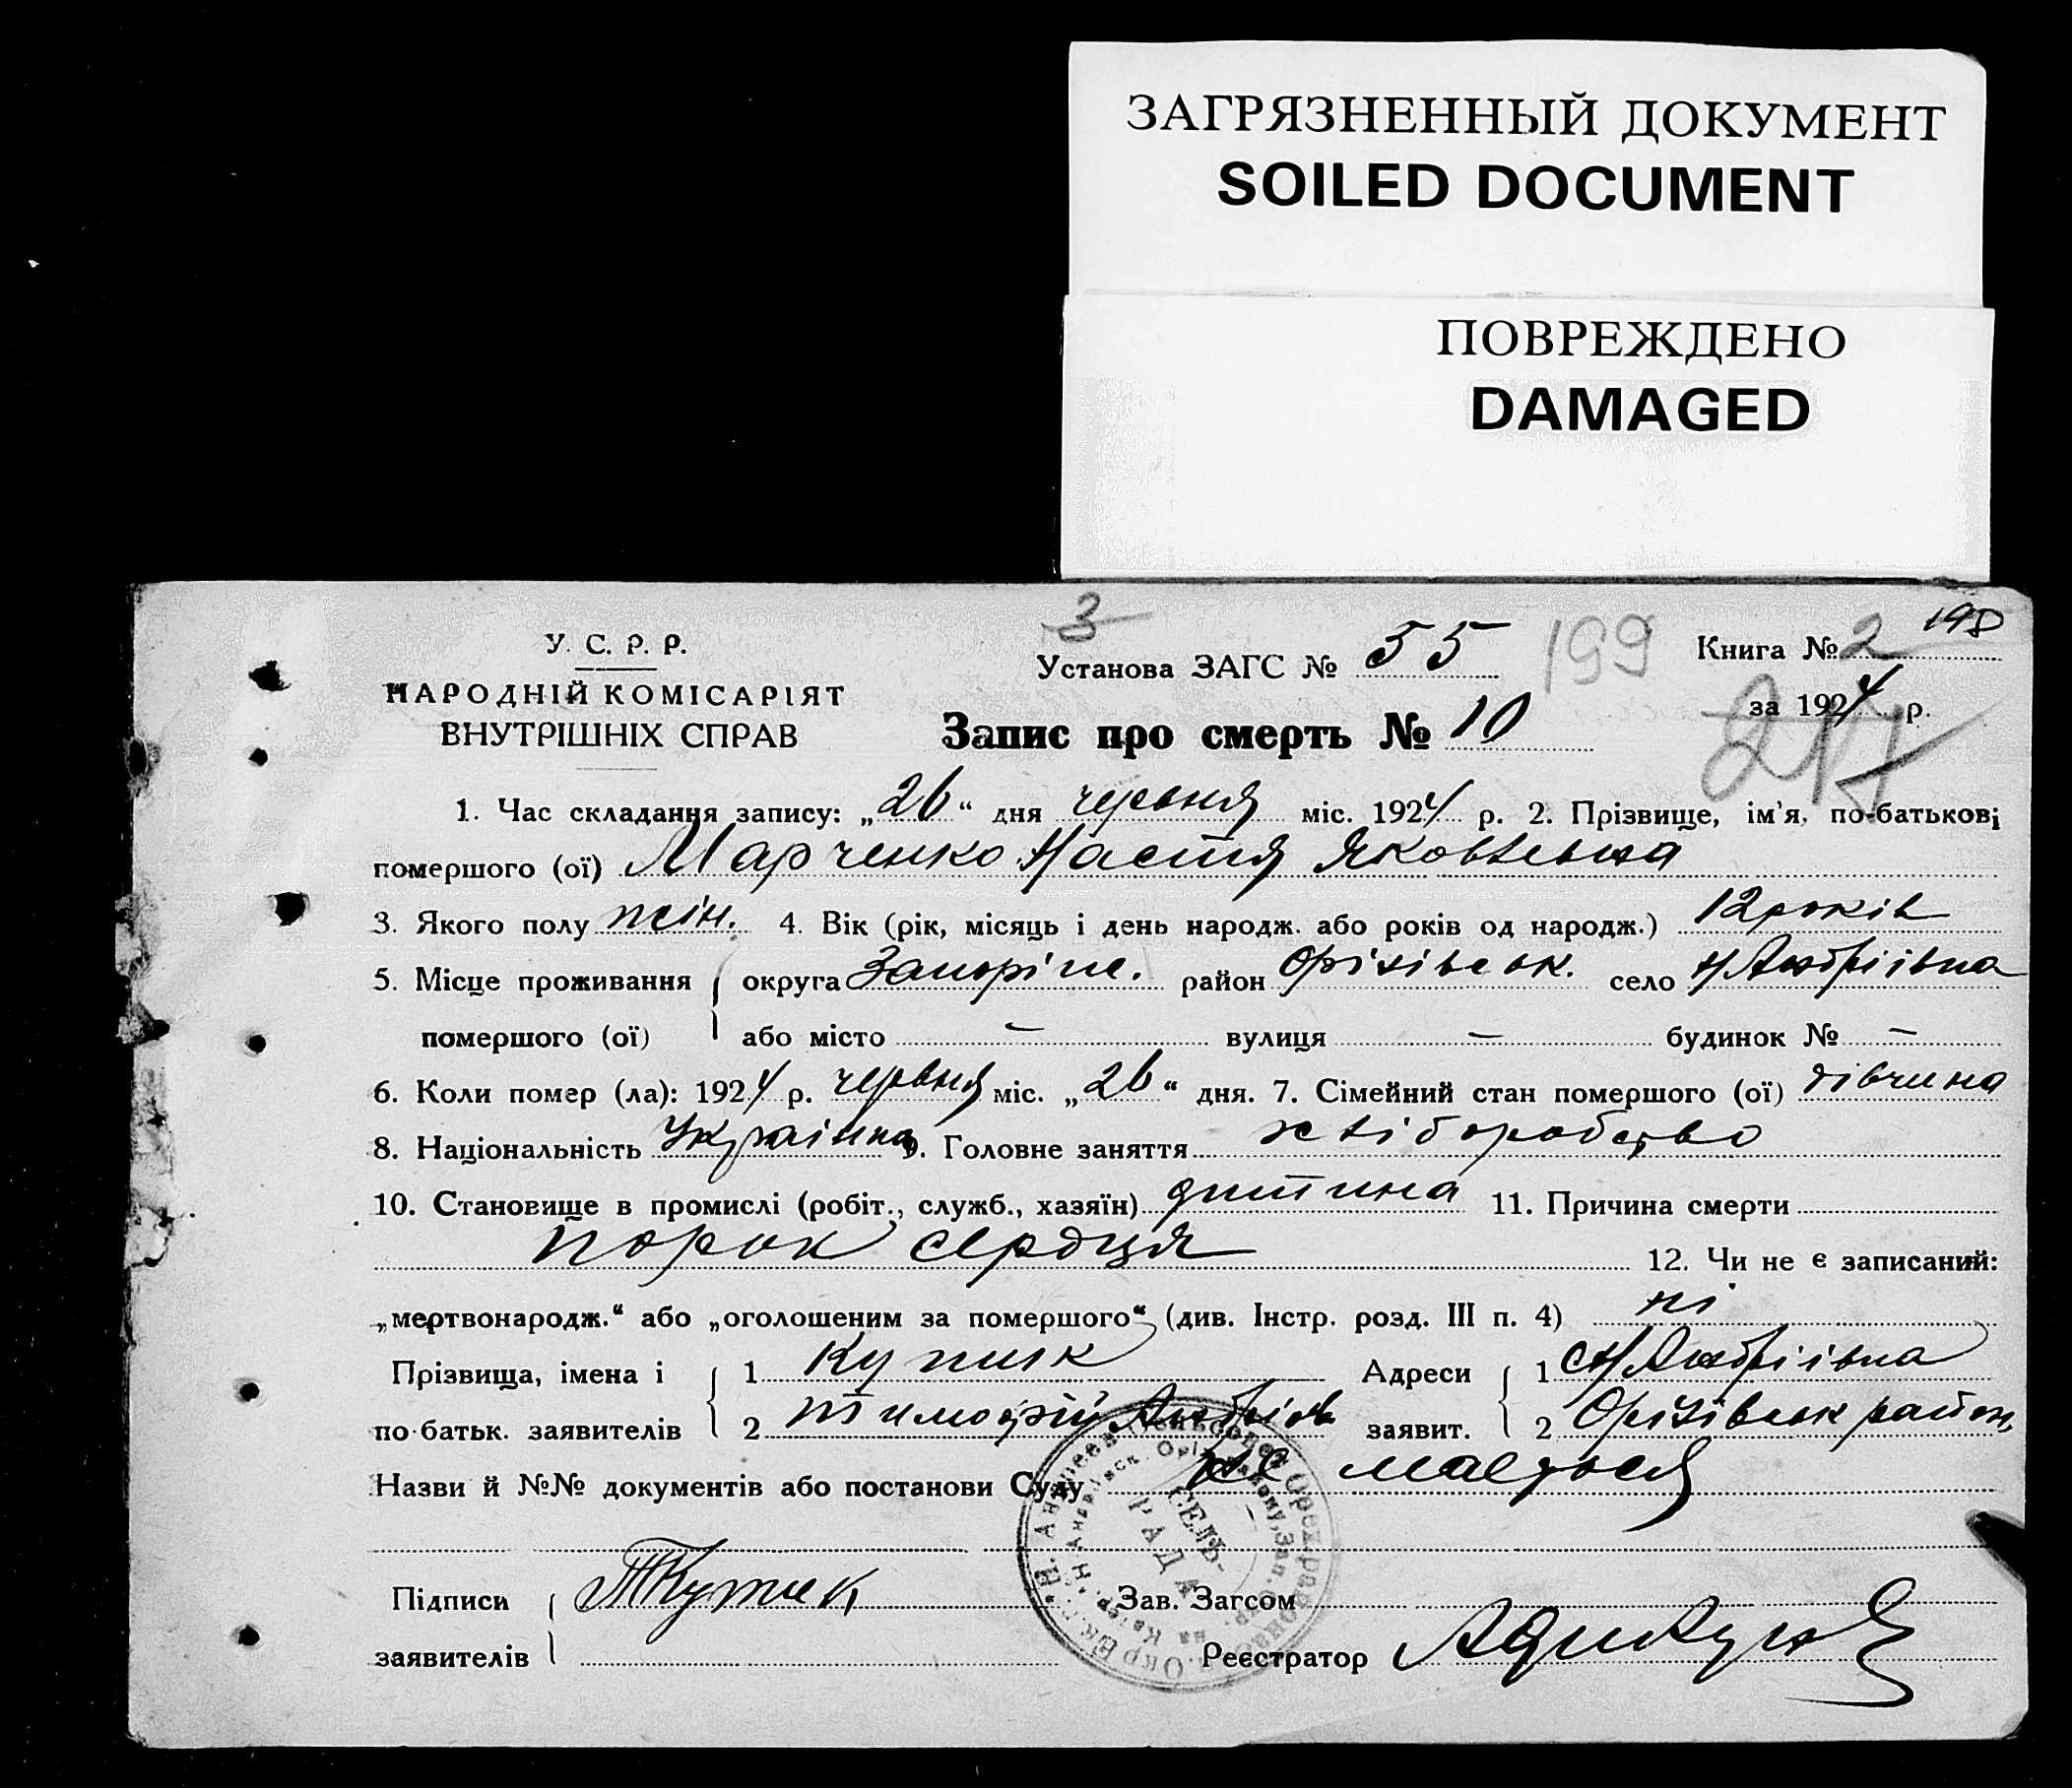 ЗАГРЯЗНЕННЫЙ ДОКУМЕНТ
SOILED DOCUMENT
ПОВРЕЖДЕНО
DAMAGED
3
198
У. С. Р. Р.
НАРОДНІЙ КОМІСАРІЯТ
ВНУТРІШНІХ СПРАВ
Установа ЗАГС № 55 199
Книга № 2
за 1924 р.
217
Запис про смерть № 10
1. Час складання запису: „26“ дня червня міс. 1924 р. 2. Прізвище, ім'я, по-батькові
помершого (ої) Марченко Настя Яковлевна
3. Якого полу жін. 4. Вік (рік, місяць і день народж. або років од народж.) 12 років
5. Місце проживання округа Запоріж. район Оріхівськ. село Н Андріївна
помершого (ої) або місто — вулиця — будинок № —
6. Коли помер (ла): 1924 р. червня міс. „26“ дня. 7. Сімейний стан помершого (ої) дівчина
8. Національність Українка 9. Головне заняття хліборобство
10. Становище в промислі (робіт., служб., хазяїн) дитина 11. Причина смерти
порок сердця 12. Чи не є записаний:
„мертвонародж.“ або „оголошеним за помершого“ (див. Інстр. розд. III п. 4) ні
Прізвища, імена і 1 Адреси 1 с Н Андріївна
по-батьк. заявителів 2 Тимофій Андріїв заявит. 2 Оріхівськ район,
Назви й №№ документів або постанови Суду не мається
СЕЛЬ-
РАДА
Підписи Зав. Загсом
заявителів Реєстратор